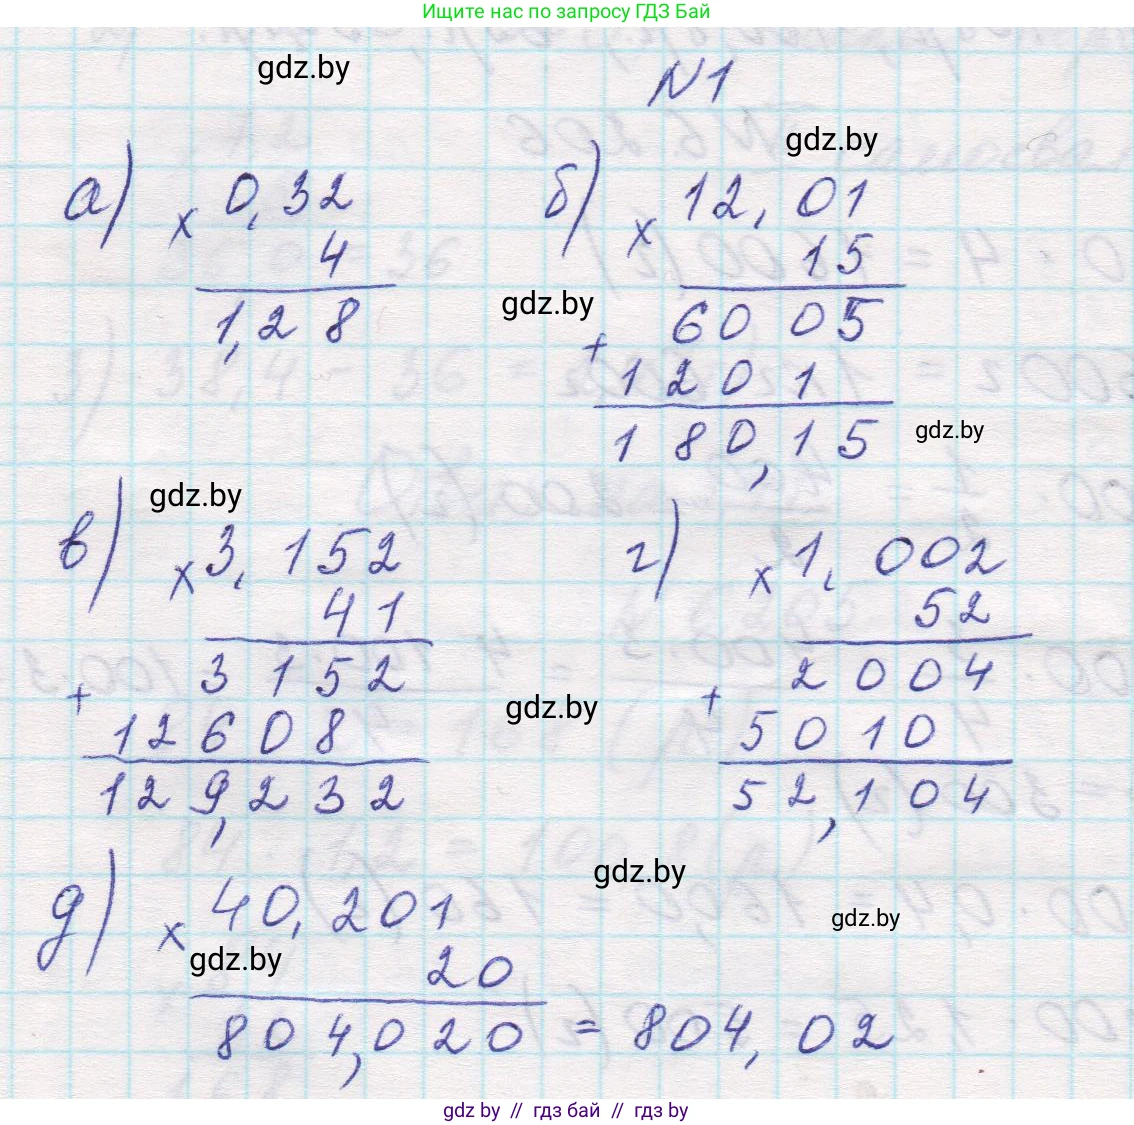 Ищите нас по запросу ГДЗ Бай
gdz.by
N1
gdz.by
а) × 0,32
4
1,28
б) × 12,01
15
gdz.by
6005
+ 1201
180,15
gdz.by
gdz.by
в) × 3,152
41
3152
+ 12608
129,232
г) × 1,002
52
2004
+ 5010
52,104
gdz.by
gdz.by
gdz.by
д) × 40,201
gdz.by
20
804,020 = 804,02
gdz by // гдз бай // гдз by